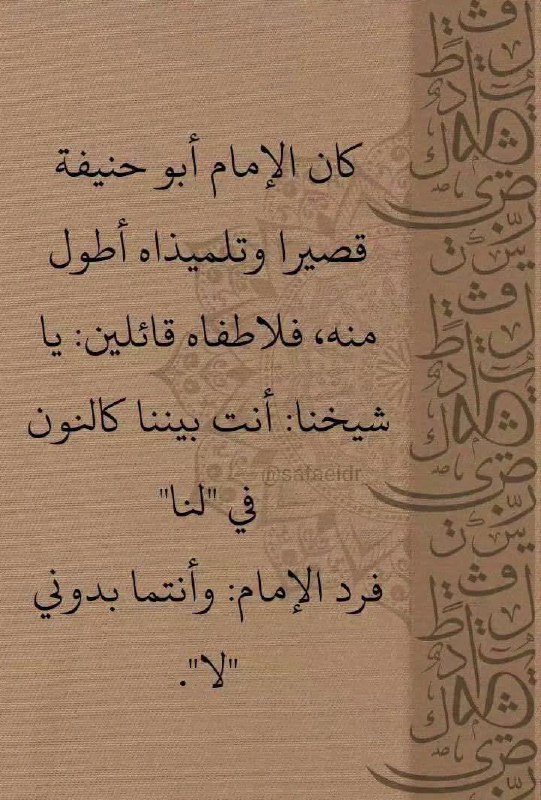 كان الإمام أبو حنيفة
قصيرا وتلميذاه أطول
منه، فلاطفاه قائلين: يا
شيخنا: أنت بيننا كالنون
@safaeidr
في "لنا"
فرد الإمام: وأنتما بدوني
"لا".